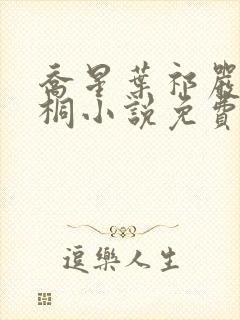 喬星葉祁嚴
桐小說免費
逗樂人生